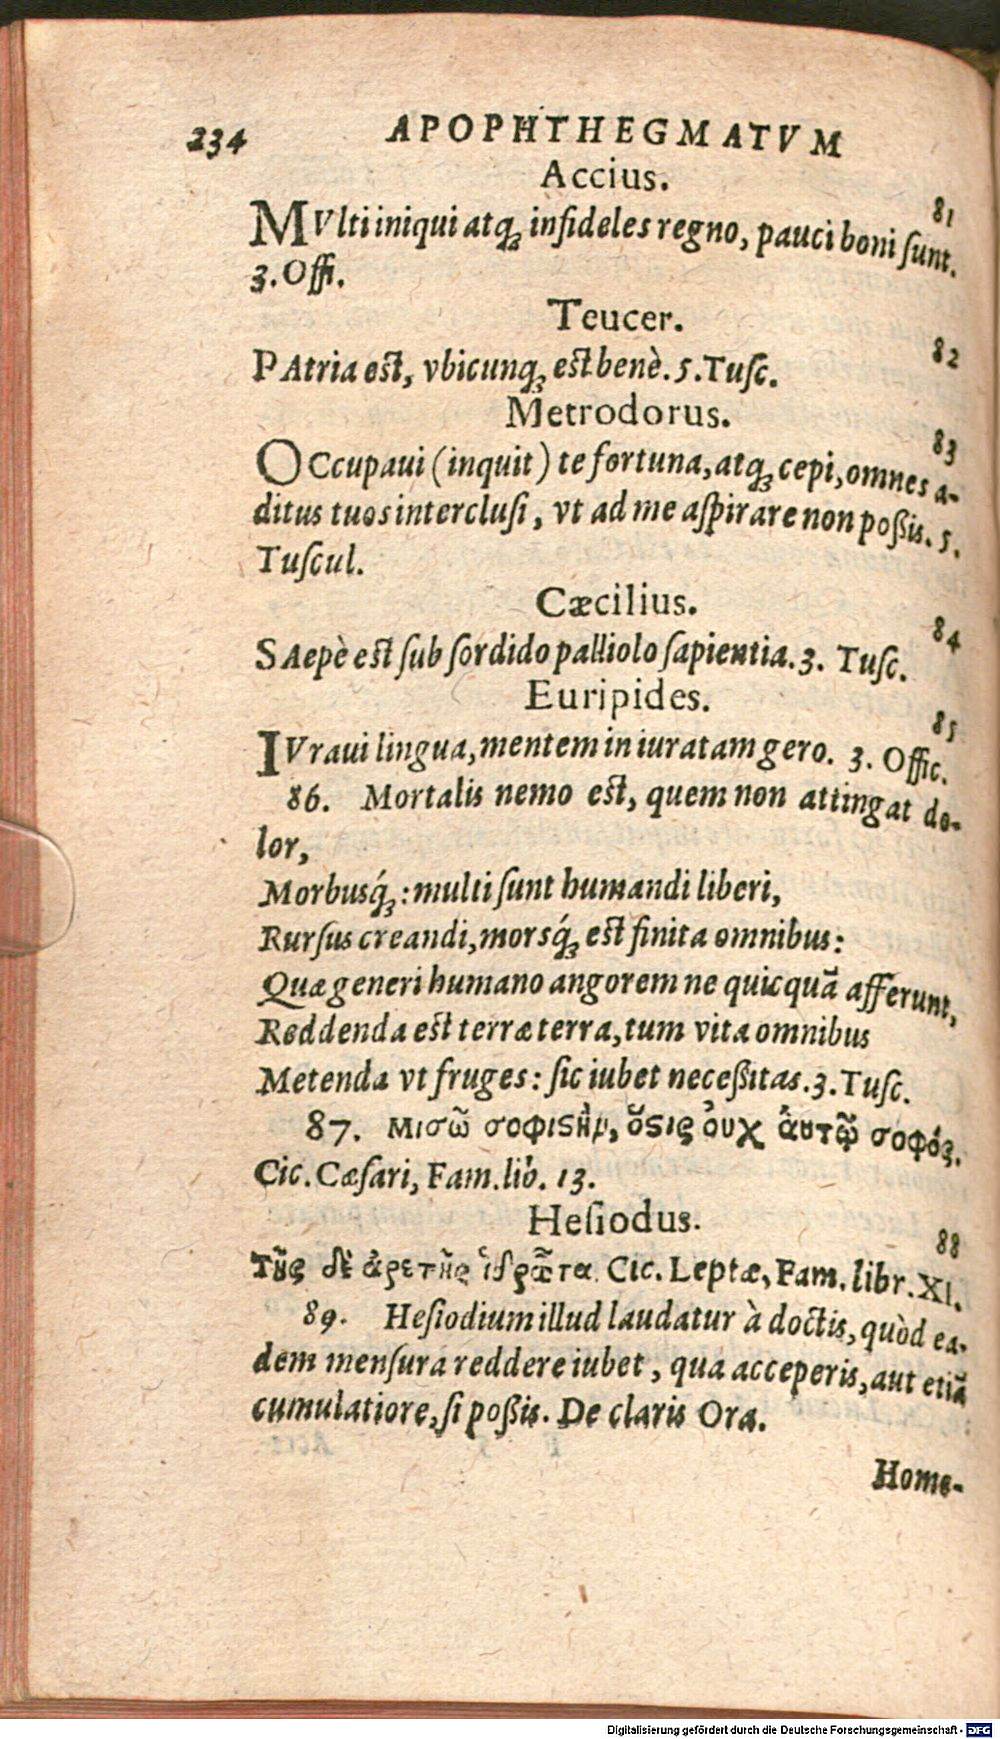 234 APOPHTHEGMATVM
Accius.
81
MVlti iniqui atq; infideles regno, pauci boni ſunt.
3. Offi.
Teucer.
82
PAtria est, vbicunq; est benè. 5. Tuſc.
Metrodorus.
83
OCcupaui (inquit) te fortuna, atq; cepi, omnes a-
ditus tuos interclusi, vt ad me aſpirare non poßis. 5.
Tuſcul.
Cæcilius.
84
SAepè est ſub ſordido palliolo ſapientia. 3. Tuſc.
Euripides.
85
IVraui lingua, mentem iniuratam gero. 3. Offic.
86. Mortalis nemo est, quem non attingat do-
lor,
Morbusq́;: multi ſunt humandi liberi,
Rurſus creandi, morsq́; est finita omnibus:
Quæ generi humano angorem ne quicquã afferunt,
Reddenda est terræ terra, tum vita omnibus
Metenda vt fruges: ſic iubet neceßitas. 3. Tuſc.
87. μισῶ σοφιϛὴν, ὅϛις ὀυχ ἁυτῷ σοφός.
Cic. Cæſari, Fam. lib. 13.
Heſiodus.
88
Τῆς δὲ ἀρετῆς ἱδρῶτα. Cic. Leptæ, Fam. libr. XI.
89. Heſiodium illud laudatur à doctis, quòd ea-
dem menſura reddere iubet, qua acceperis, aut etiã
cumulatiore, ſi poßis. De claris Ora.
Home-
Digitalisierung gefördert durch die Deutsche Forschungsgemeinschaft - DFG